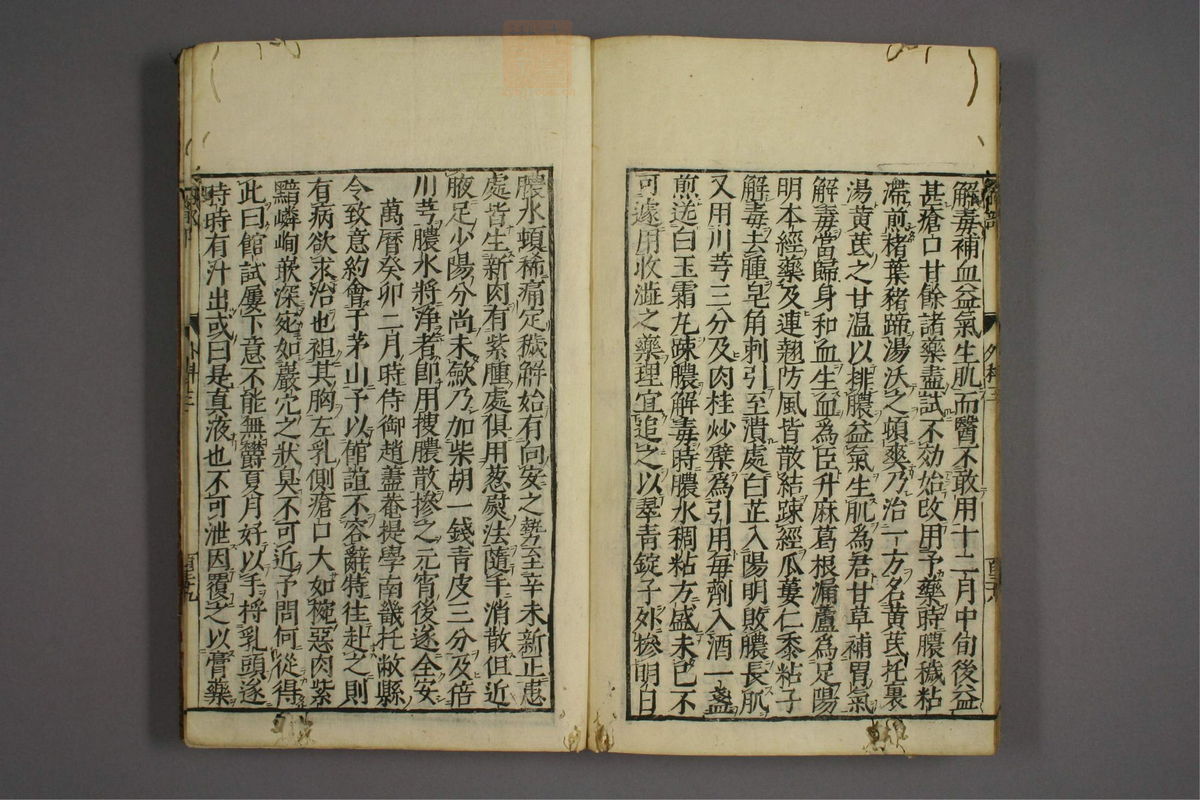 解毒補血益氣生肌而醫不敢用十二月中旬後益
甚瘡口甘餘諸藥盡試不効始改用予藥時膿穢粘
滯煎楮葉猪蹄湯沃之頓爽乃治一方名黃芪托裏
湯黃芪之甘温以排膿益氣生肌為君甘草補胃氣
解毒當歸身和血生血為臣升麻葛根漏蘆為足陽
明本經藥及連翹防風皆散結踈經瓜蔞仁黍粘子
解毒去腫皂角刺引至潰處白芷入陽明敗膿長肌
又用川芎三分及肉桂炒蘗為引用每劑入酒一盞
煎送白玉霜丸踈膿解毒時膿水稠粘方盛未已不
可遽用收澁之藥理宜追之以翠青錠子外摻明日
膿水頓稀痛定穢解始有向安之勢至辛未新正患
處皆生新肉有紫腫處俱用葱熨法隨手消散但近
腋足少陽分尚未歛乃加柴胡一錢青皮三分及倍
川芎膿水將淨者即用搜膿散摻之元宵後遂全安
萬曆癸卯二月時侍御趙藎菴提學南畿托敝縣
令致意約會于茅山予以館誼不容辭特徃赴之則
有病欲求治也袒其胸左乳側瘡口大如椀惡肉紫
黯嶙峋嵌深宛如巖穴之狀臭不可近予問何從得
此曰館試屢下意不能無欝夏月好以手捋乳頭遂
時時有汁出或曰是真液也不可泄因覆之以膏藥
外科三